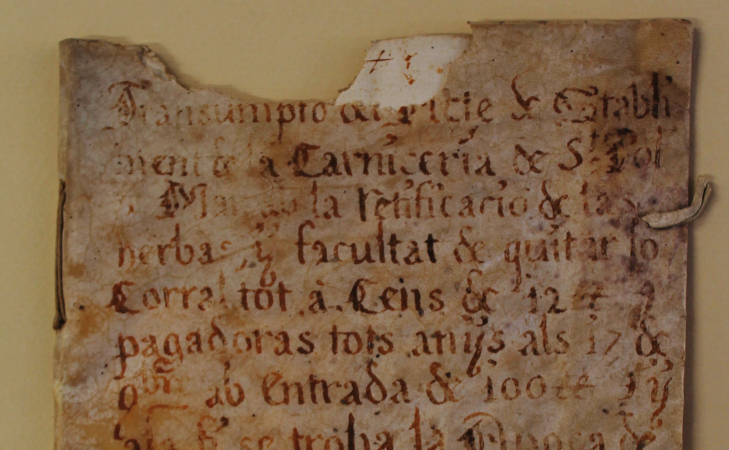 Transumpto del Acte de Stabli
ment de la Carniceria de St Pol
Mar ab la retificacio de las
herbas, ÿ facultat de quitar lo
Corral tot à Cens de 12 ₶
pagadoras tots anÿs als 17 de
9bre ab Entrada de 100 ₶ ÿ
se troba la Apoca de